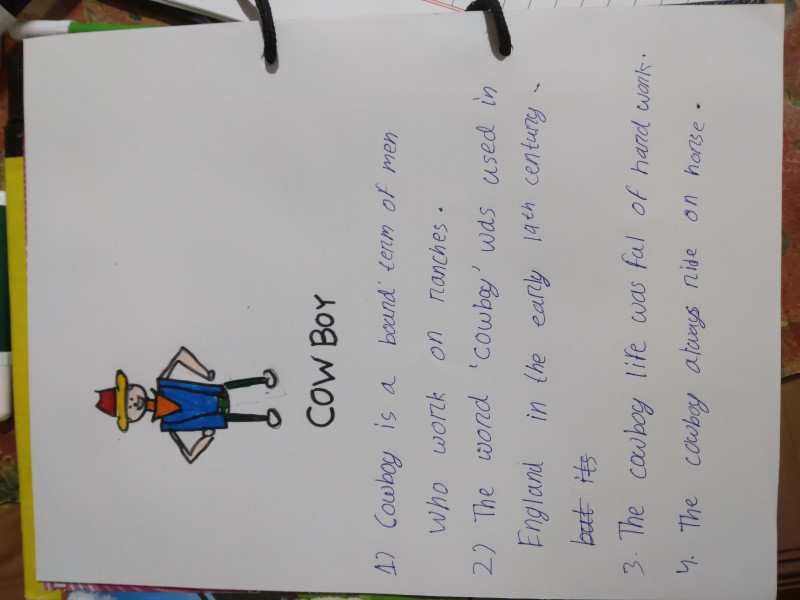 COWBOY
1) Cowboy is a board term of men
who work on ranches.
2) The word 'cowboy' was used in
England in the early 19th century.
but its
3. The cowboy life was ful of hard work.
4. The cowboy always ride on horse.